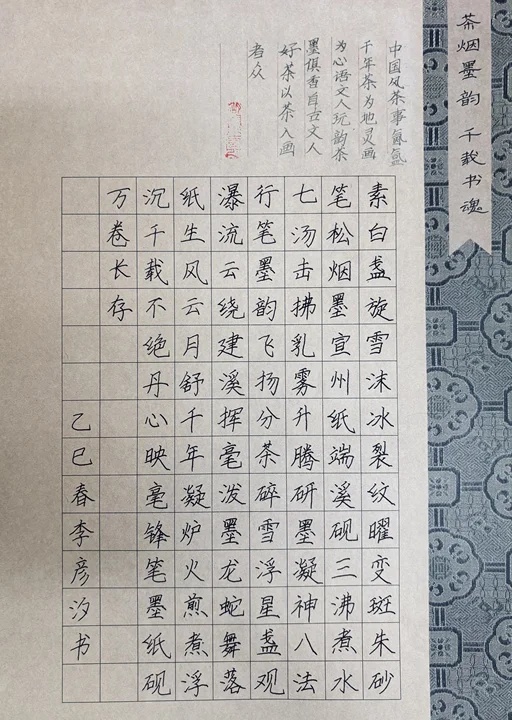 茶烟墨韵 千载书魂
中国风茶事氤氲
千年茶为地灵画
为心语文人玩韵茶
墨俱香自古文人
好茶以茶入画
者众
素白盏旋雪沫冰裂纹曜变斑朱砂
笔松烟墨宣州纸端溪砚三沸煮水
七汤击拂乳雾升腾研墨凝神八法
行笔墨韵飞扬分茶碎雪浮星盏观
瀑流云绕建溪挥毫泼墨龙蛇舞落
纸生风云月舒千年凝炉火煎煮浮
沉千载不绝丹心映毫锋笔墨纸砚
万卷长存
乙巳春李彦汐书